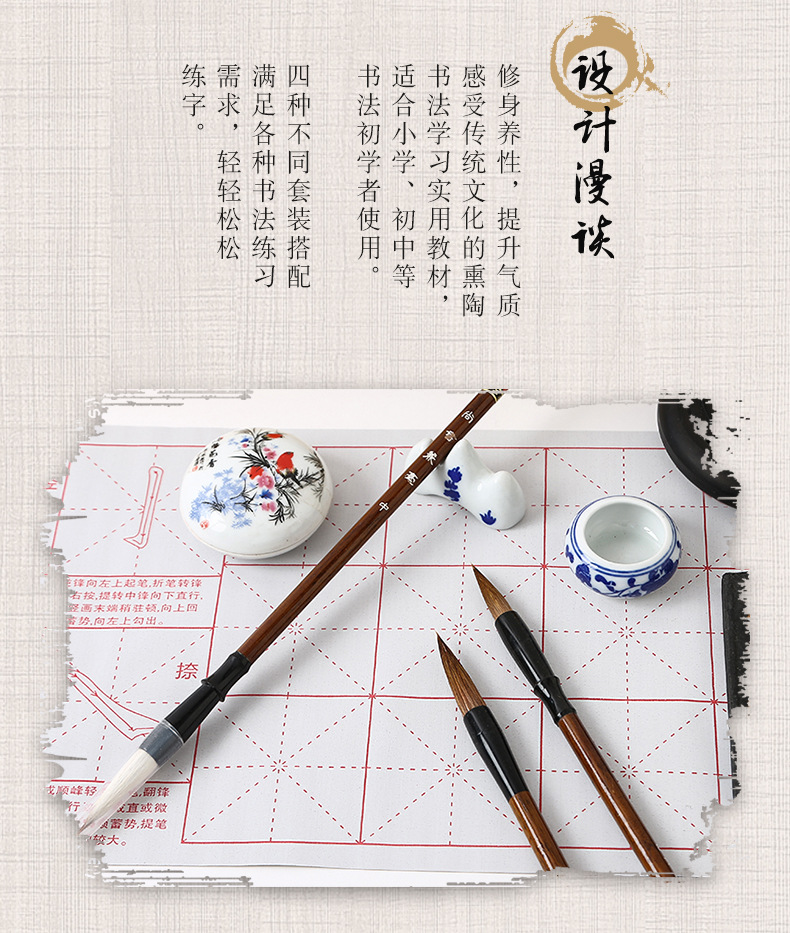 设计漫谈
修身养性，提升气质
感受传统文化的熏陶
书法学习实用教材，
适合小学、初中等
书法初学者使用。
四种不同套装搭配
满足各种书法练习
需求，轻轻松松
练字。
尚育兼毫 中
锋向左上起笔,折笔转锋
右按,提转中锋向下直行,
竖画末端稍驻顿,向上回
蓄势,向左上勾出。
捺
翻锋
行
直或微
蓄势,提笔
较大。